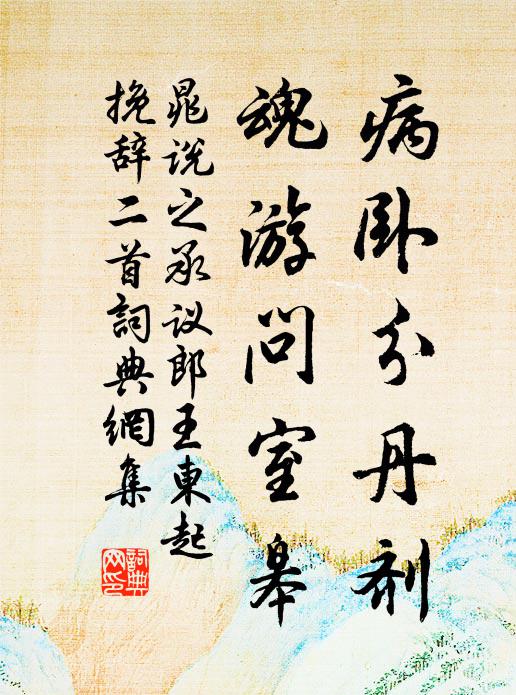 病卧分丹剂
魂游问室皋
晁说之承议郎王東起
挽辞二首詞典網集
詞典网印